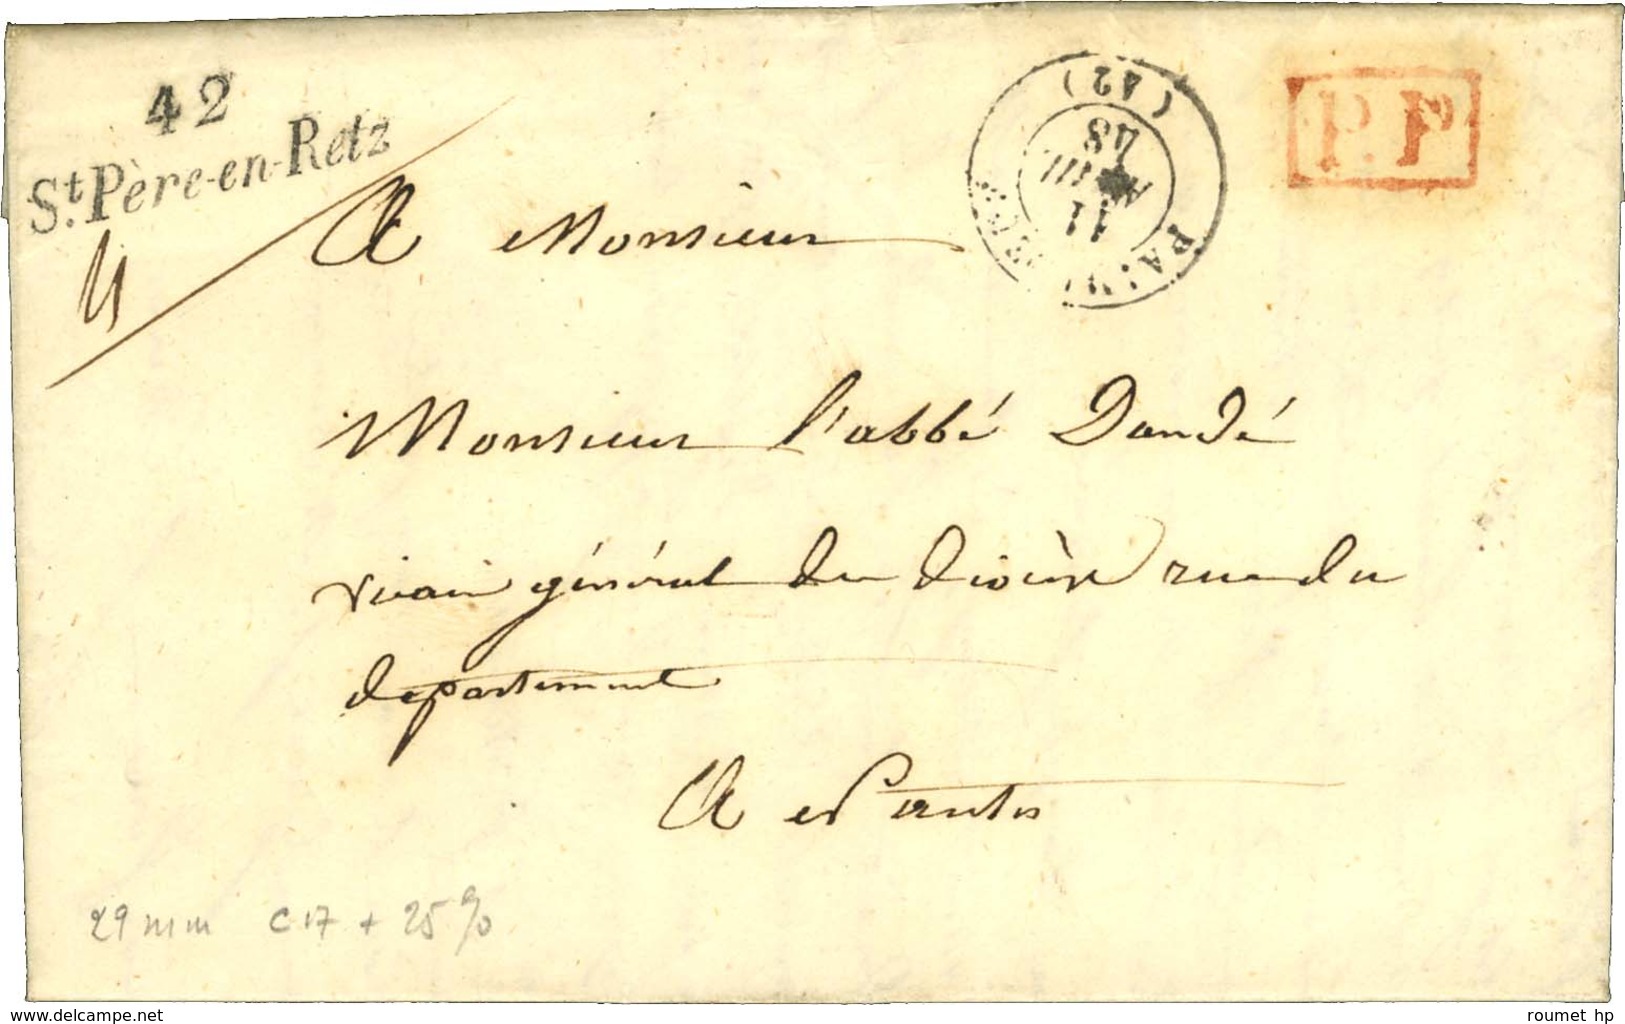 42
St. Père-en-Retz
(42)
11
AVRIL
48
P.P.
A Monsieur
Monsieur l'abbé Dandé
vicaire général du diocèse rue du
département
A Nantes
29 mm C 17 + 25 %
www.delcampe.net
roumet hp